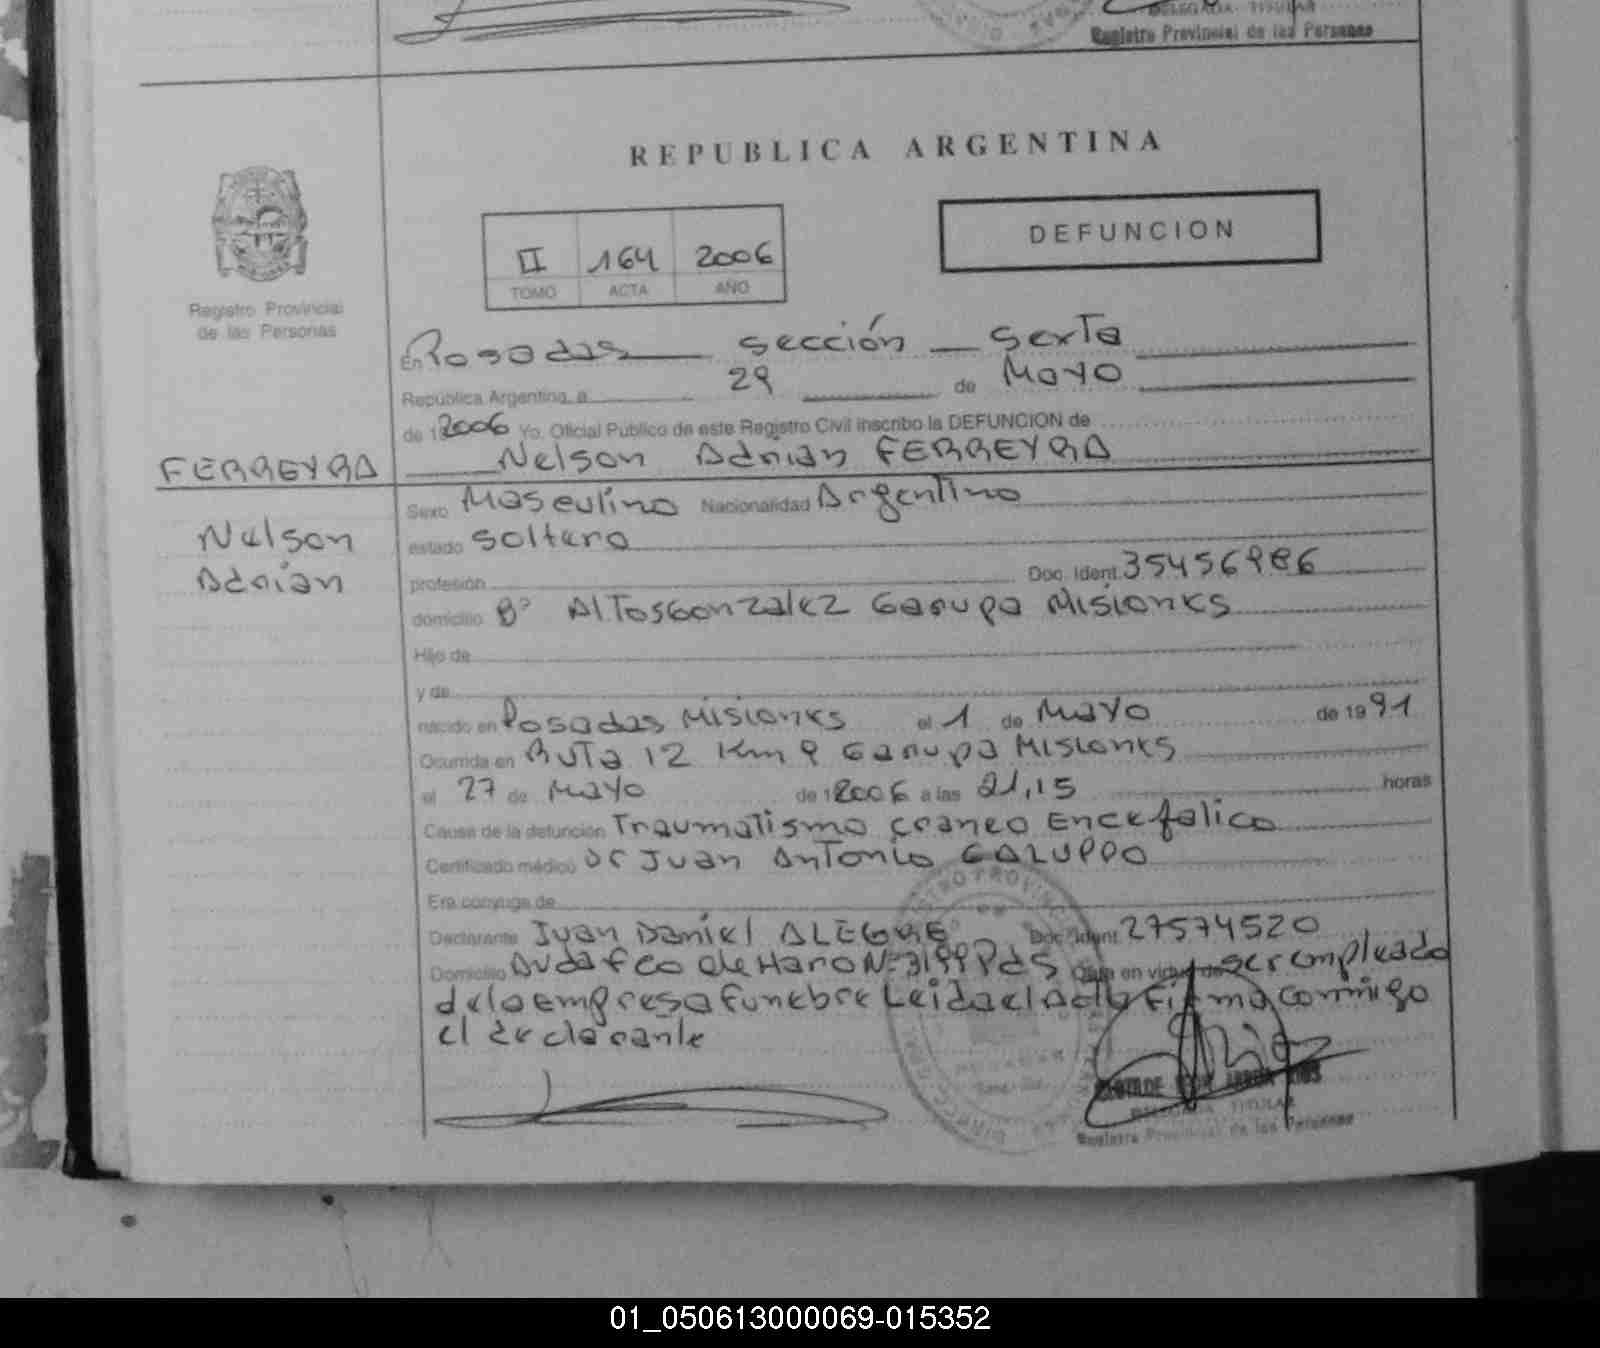 DELEGADA TITULAR
Registro Provincial de las Personas
REPUBLICA ARGENTINA
DEFUNCION
II 164 2006
TOMO ACTA AÑO
Registro Provincial
de las Personas
En Posadas sección sexta
República Argentina, a 29 de Mayo
de 12006 Yo, Oficial Publico de este Registro Civil inscribo la DEFUNCION de
FERREYRA Nelson Adrián FERREYRA
Nelson
Adrián
Sexo Masculino Nacionalidad Argentino
estado soltero
profesión Doc. Ident. 35456986
domicilio Bº Altos Gonzalez Garupa Misiones
Hijo de
y de
nacido en Posadas Misiones el 1 de Mayo de 1991
Ocurrida en Ruta 12 Km 9 Garupa Misiones
el 27 de Mayo de 12006 a las 21,15 horas
Causa de la defunción Traumatismo craneo Encefalico
Certificado médico Dr Juan Antonio GALUPPO
Era conyuge de
Declarante Juan Daniel ALEGRE Doc. Ident. 27574520
Domicilio Avda Fco de Haro Nº 3199 Pds Obra en virtud de ser empleado
de la empresa funebre Leida el Acta Firma conmigo
el declarante
DELEGADA TITULAR
Registro Provincial de las Personas
01_050613000069-015352